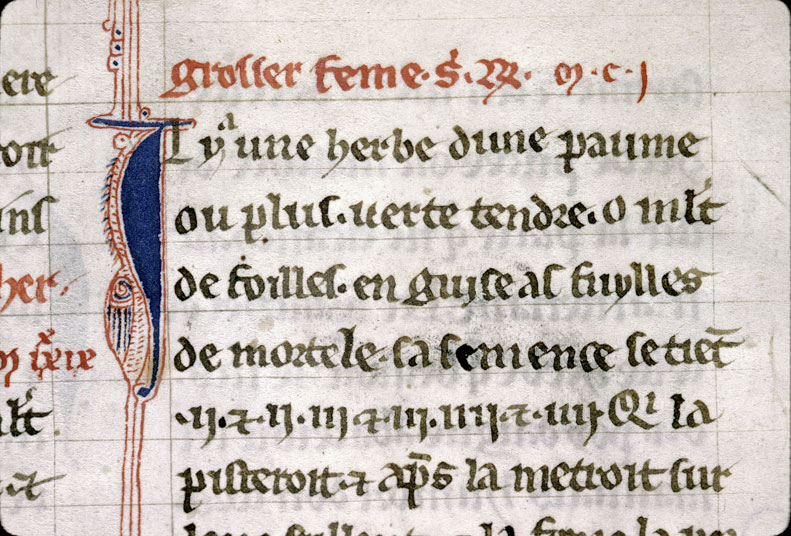 ere
grosser feme. S. W. m. c. j
I l yᵃ une herbe dune paume
ou plus. uerte tendre. o mlt
ins
de foilles. en guise as fuylles
her.
de mortele. sa semence se tiet
.ij. ⁊. ij. iij ⁊. iij. iiij. ⁊. iiij. Qⁱ la
mlt
pisteroit. ⁊ aps la metroit sur
.⁊